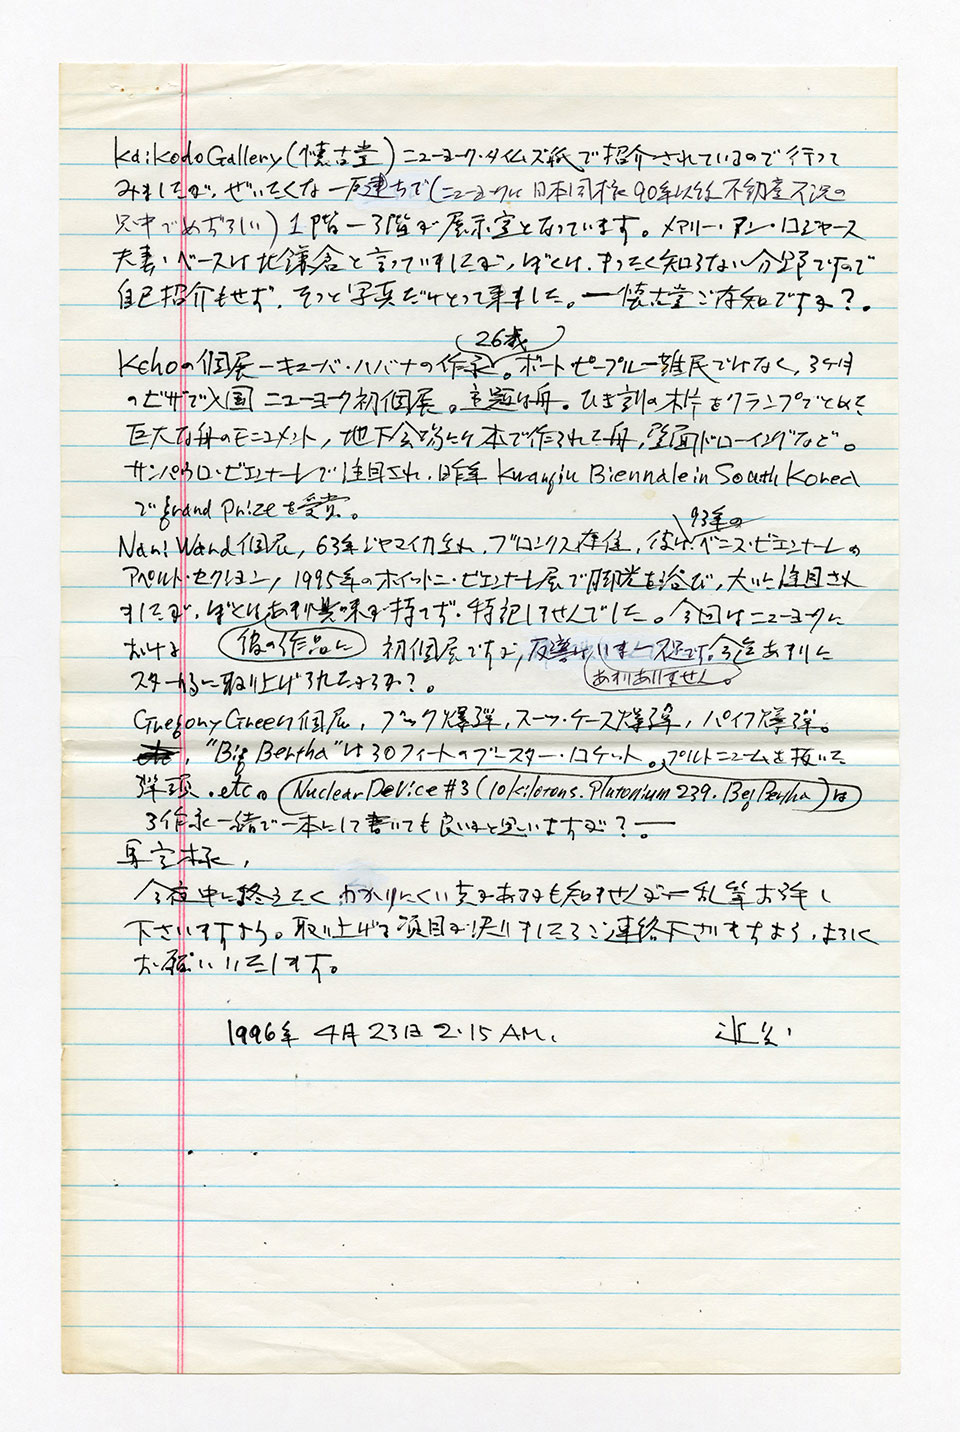 Kaikodo Gallery (懐古堂) ニューヨーク・タイムズ紙で紹介されているので行って
みましたが、ぜいたくな一戸建ちで(ニューヨークは日本同様90年以後不動産不況の
最中でめずらしい) 1階ー3階が展示室となっています。メアリー・アン・ロジャース
夫妻・ベースは北鎌倉と言っていましたが、ぼくは、まったく知らない分野ですので
自己紹介もせず、そっと写真だけとって来ました。ー懐古堂ご存知ですか?。
26歳
Kchoの個展ーキューバ・ハバナの作家。ボートピープルー難民ではなく、3ケ月
のビザで入国 ニューヨーク初個展。主題は舟。ひき割の木片をクランプでとめた
巨大な舟のモニュメント, 地下会場には本で作られた舟, 壁面ドローイングなど。
サンパウロ・ビエンナーレで注目され、昨年 Kwangju Biennale in South Korea
で grand prize を受賞。
93年の
Nari Ward 個展, 63年ジャマイカ生れ, ブロンクス在住, 彼は、ベニス・ビエンナーレの
アペルト・セクション, 1995年のホイットニ・ビエンナーレ展で脚光を浴び, 大いに注目され
ましたが、ぼくはあまり興味が持てず、特記しませんでした。今回はニューヨークに
おける 彼の作品に 初個展ですが, 反響はいま一不足です。今迄あまりに
あまりありません。
スター的に取り上げられたからか?。
Gregory Green 個展, ブック爆弾, スーツ・ケース爆弾, パイプ爆弾。
"Big Bertha"は30フィートのブースター・ロケット。プルトニュームを抜いた
弾頭. etc. Nuclear Device #3 (10 kilotons. Plutonium 239. Big Bertha) は
3作家一緒で一本にして書いても良いかと思いますが?ー
様,
今夜中に終えたく わかりにくい点があるかも知れませんがー乱筆お許し
下さいますよう。取り上げる項目が決りましたらご連絡下さいますよう, よろしく
お願いいたします。
1996年 4月23日 2:15 AM.